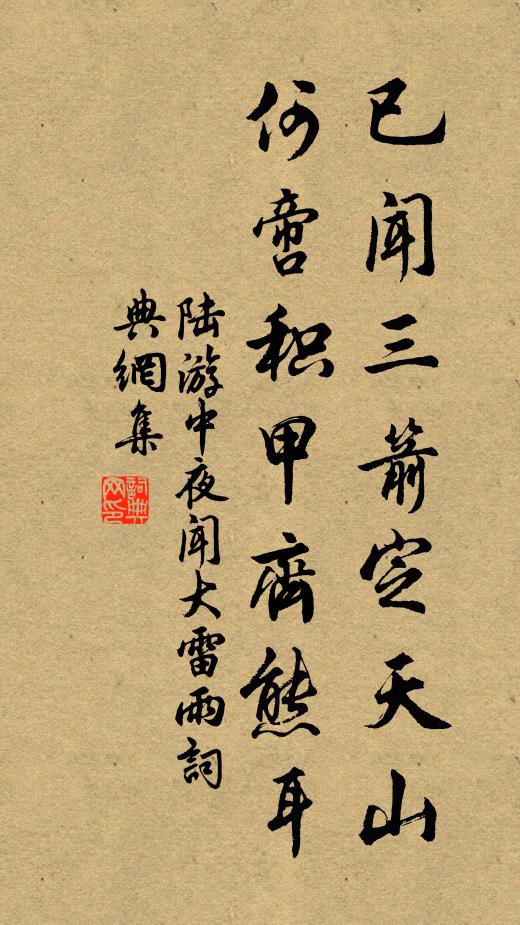 已闻三箭定天山
何啻积甲齊熊耳
陆游中夜闻大雷雨詞
典網集
詞典网印